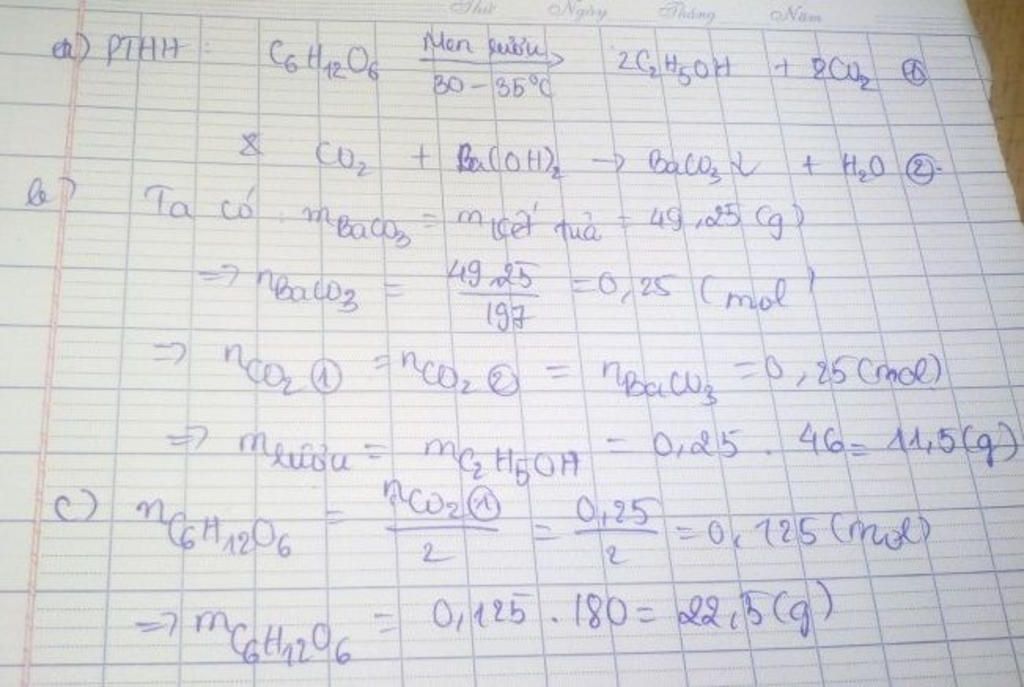 Thứ Ngày Tháng Năm
a) PTHH: C6H12O6 Men rượu/30-35°C → 2C2H5OH + 2CO2 ①
CO2 + Ba(OH)2 → BaCO3↓ + H2O ②.
b) Ta có mBaCO3 = mkết tủa = 49,25 (g)
=> nBaCO3 = 49,25/197 = 0,25 (mol)
=> nCO2 ① = nCO2 ② = nBaCO3 = 0,25 (mol)
=> mrượu = mC2H5OH = 0,25 . 46 = 11,5 (g)
c) nC6H12O6 = nCO2 ①/2 = 0,25/2 = 0,125 (mol)
=> mC6H12O6 = 0,125 . 180 = 22,5 (g)